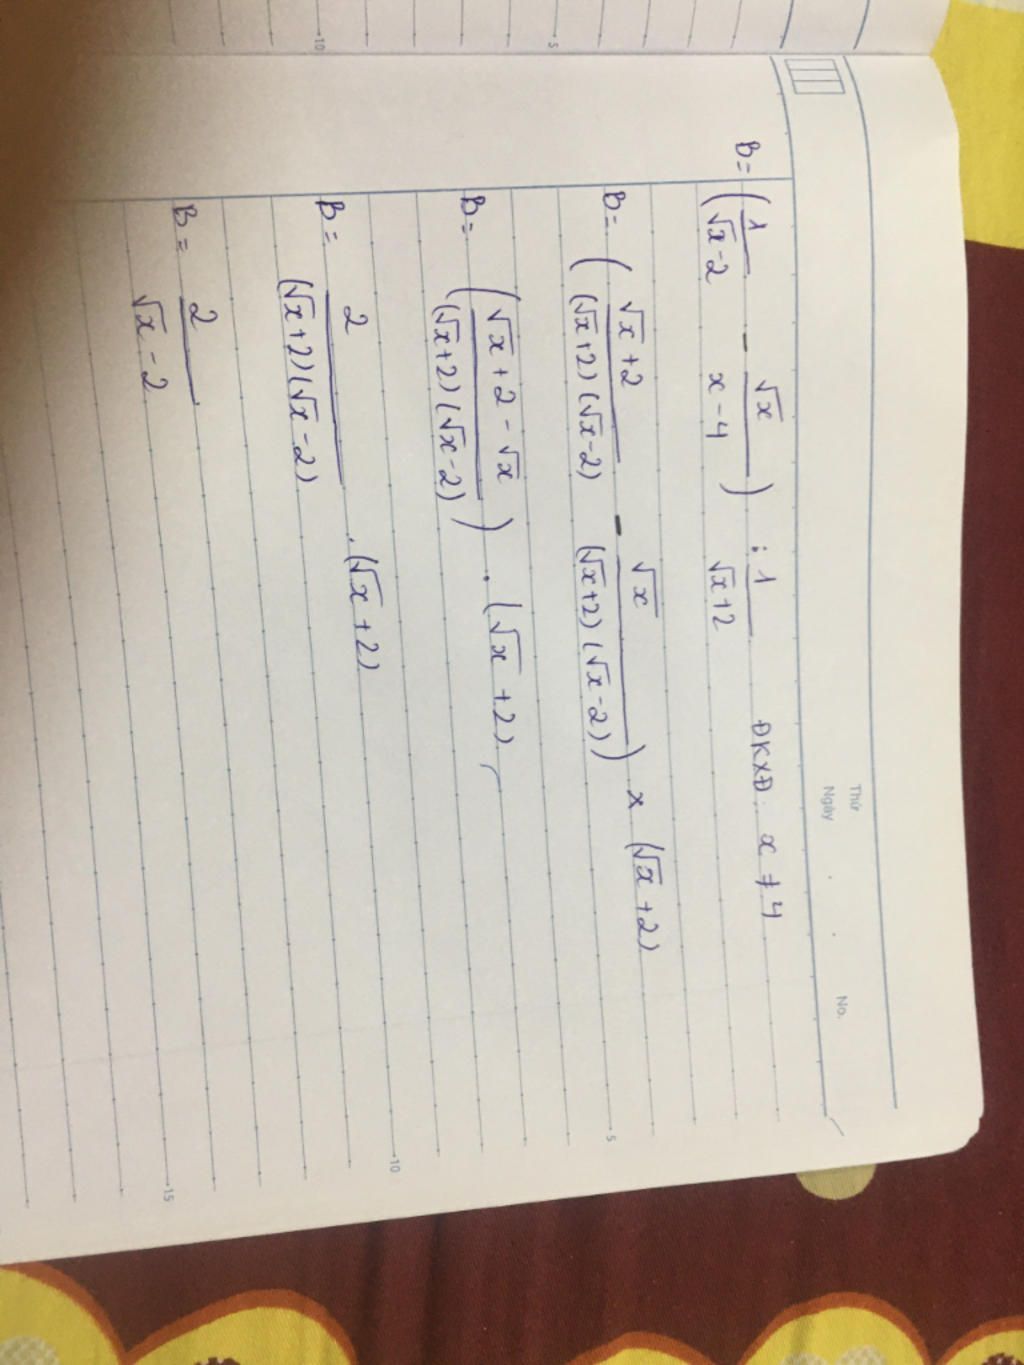 Thứ
Ngày . . No.
B = (1/(√x-2) - √x/(x-4)) : 1/(√x+2) ĐKXĐ. x ≠ 4
B = ((√x+2)/((√x+2)(√x-2)) - √x/((√x+2)(√x-2))) x (√x+2)
B = ((√x+2-√x)/((√x+2)(√x-2))) . (√x+2)
B = 2/((√x+2)(√x-2)) . (√x+2)
B = 2/(√x-2)
5
10
15
5
10